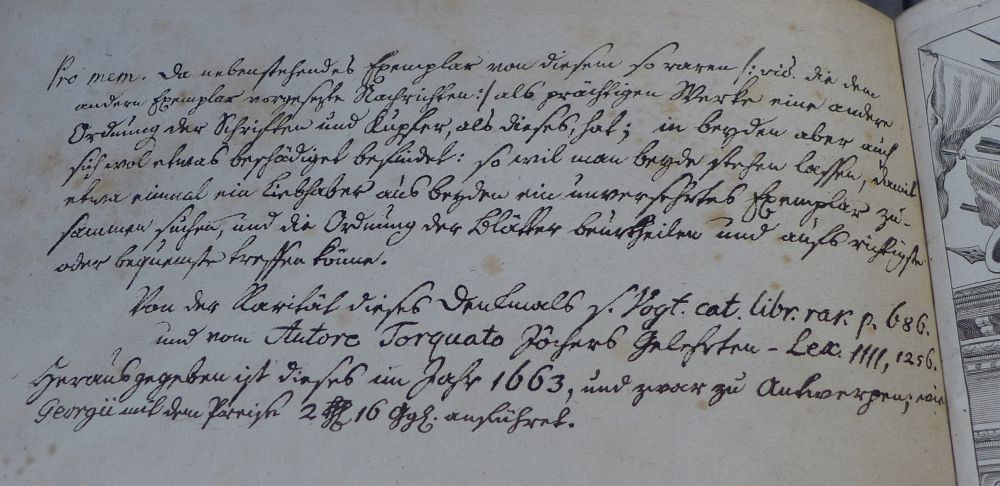 Pro mem. Da nebenstehendes Exemplar von diesem so raren /: vid. die dem
andern Exemplar vorgesezte Nachrichten :/ als prächtigen Werke eine andere
Ordnung der Schriften und Kupfer, als dieses, hat; in beyden aber auch
sich wol etwas beschädiget befindet: so wil man beyde stehen lassen, damit
etwa einmal ein Liebhaber aus beyden ein unversehrtes Exemplar zu-
sammen suchen, und die Ordnung der Blätter beurtheilen und aufs richtigste
oder bequemste treffen könne.
Von der Rarität dieses Denkmals s. Vogt. cat. libr. rar. p. 686.
und vom Autore Torquato Jöchers Gelehrten-Lex. IIII, 1256.
Herausgegeben ist dieses im Jahr 1663, und zwar zu Antwerpen; wie
Georgii mit dem Preise 2 16 Ggl. anführet.